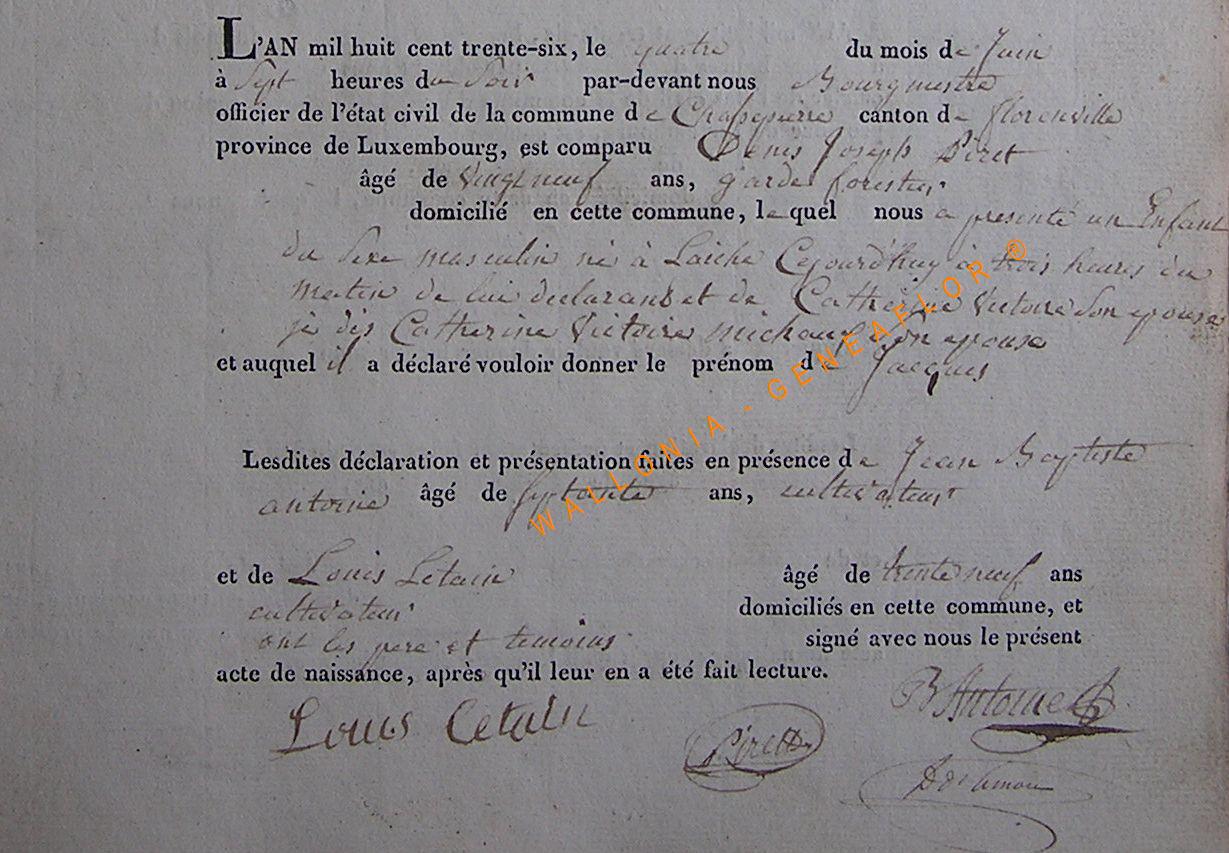 L'AN mil huit cent trente-six, le quatre du mois de Juin
à Sept heures du Soir par-devant nous Bourgmestre
officier de l'état civil de la commune de Chassepierre canton de florenville
province de Luxembourg, est comparu Denis Joseph Piret
âgé de vingt neuf ans, garde forestier
domicilié en cette commune, lequel nous a presenté un Enfant
du sexe masculin né à Laiche Cejourd'huy à trois heures du
matin de lui declarant et de Catherine Victoire son epouse
je dis Catherine Victoire michaux son epouse
et auquel il a déclaré vouloir donner le prénom de Jacques
Lesdites déclaration et présentation faites en présence de Jean Baptiste
antoine âgé de septante ans, cultivateur
et de Louis Letain âgé de trente neuf ans
cultivateur domiciliés en cette commune, et
ont les pere et temoins signé avec nous le présent
acte de naissance, après qu'il leur en a été fait lecture.
Louis Letain Piret B Antoine
WALLONIA - GENEAFLOR ®